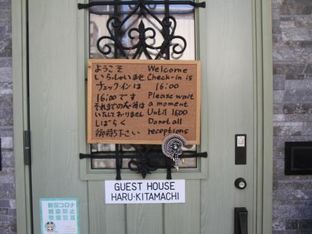 ようこそ
いらっしゃいませ
チェックインは
16:00です
しばらく
お待ち下さい
Welcome
Check-in is
16:00
Please wait
a moment
Until 1600
receptions
GUEST HOUSE
HARU・KITAMACHI
新型コロナ